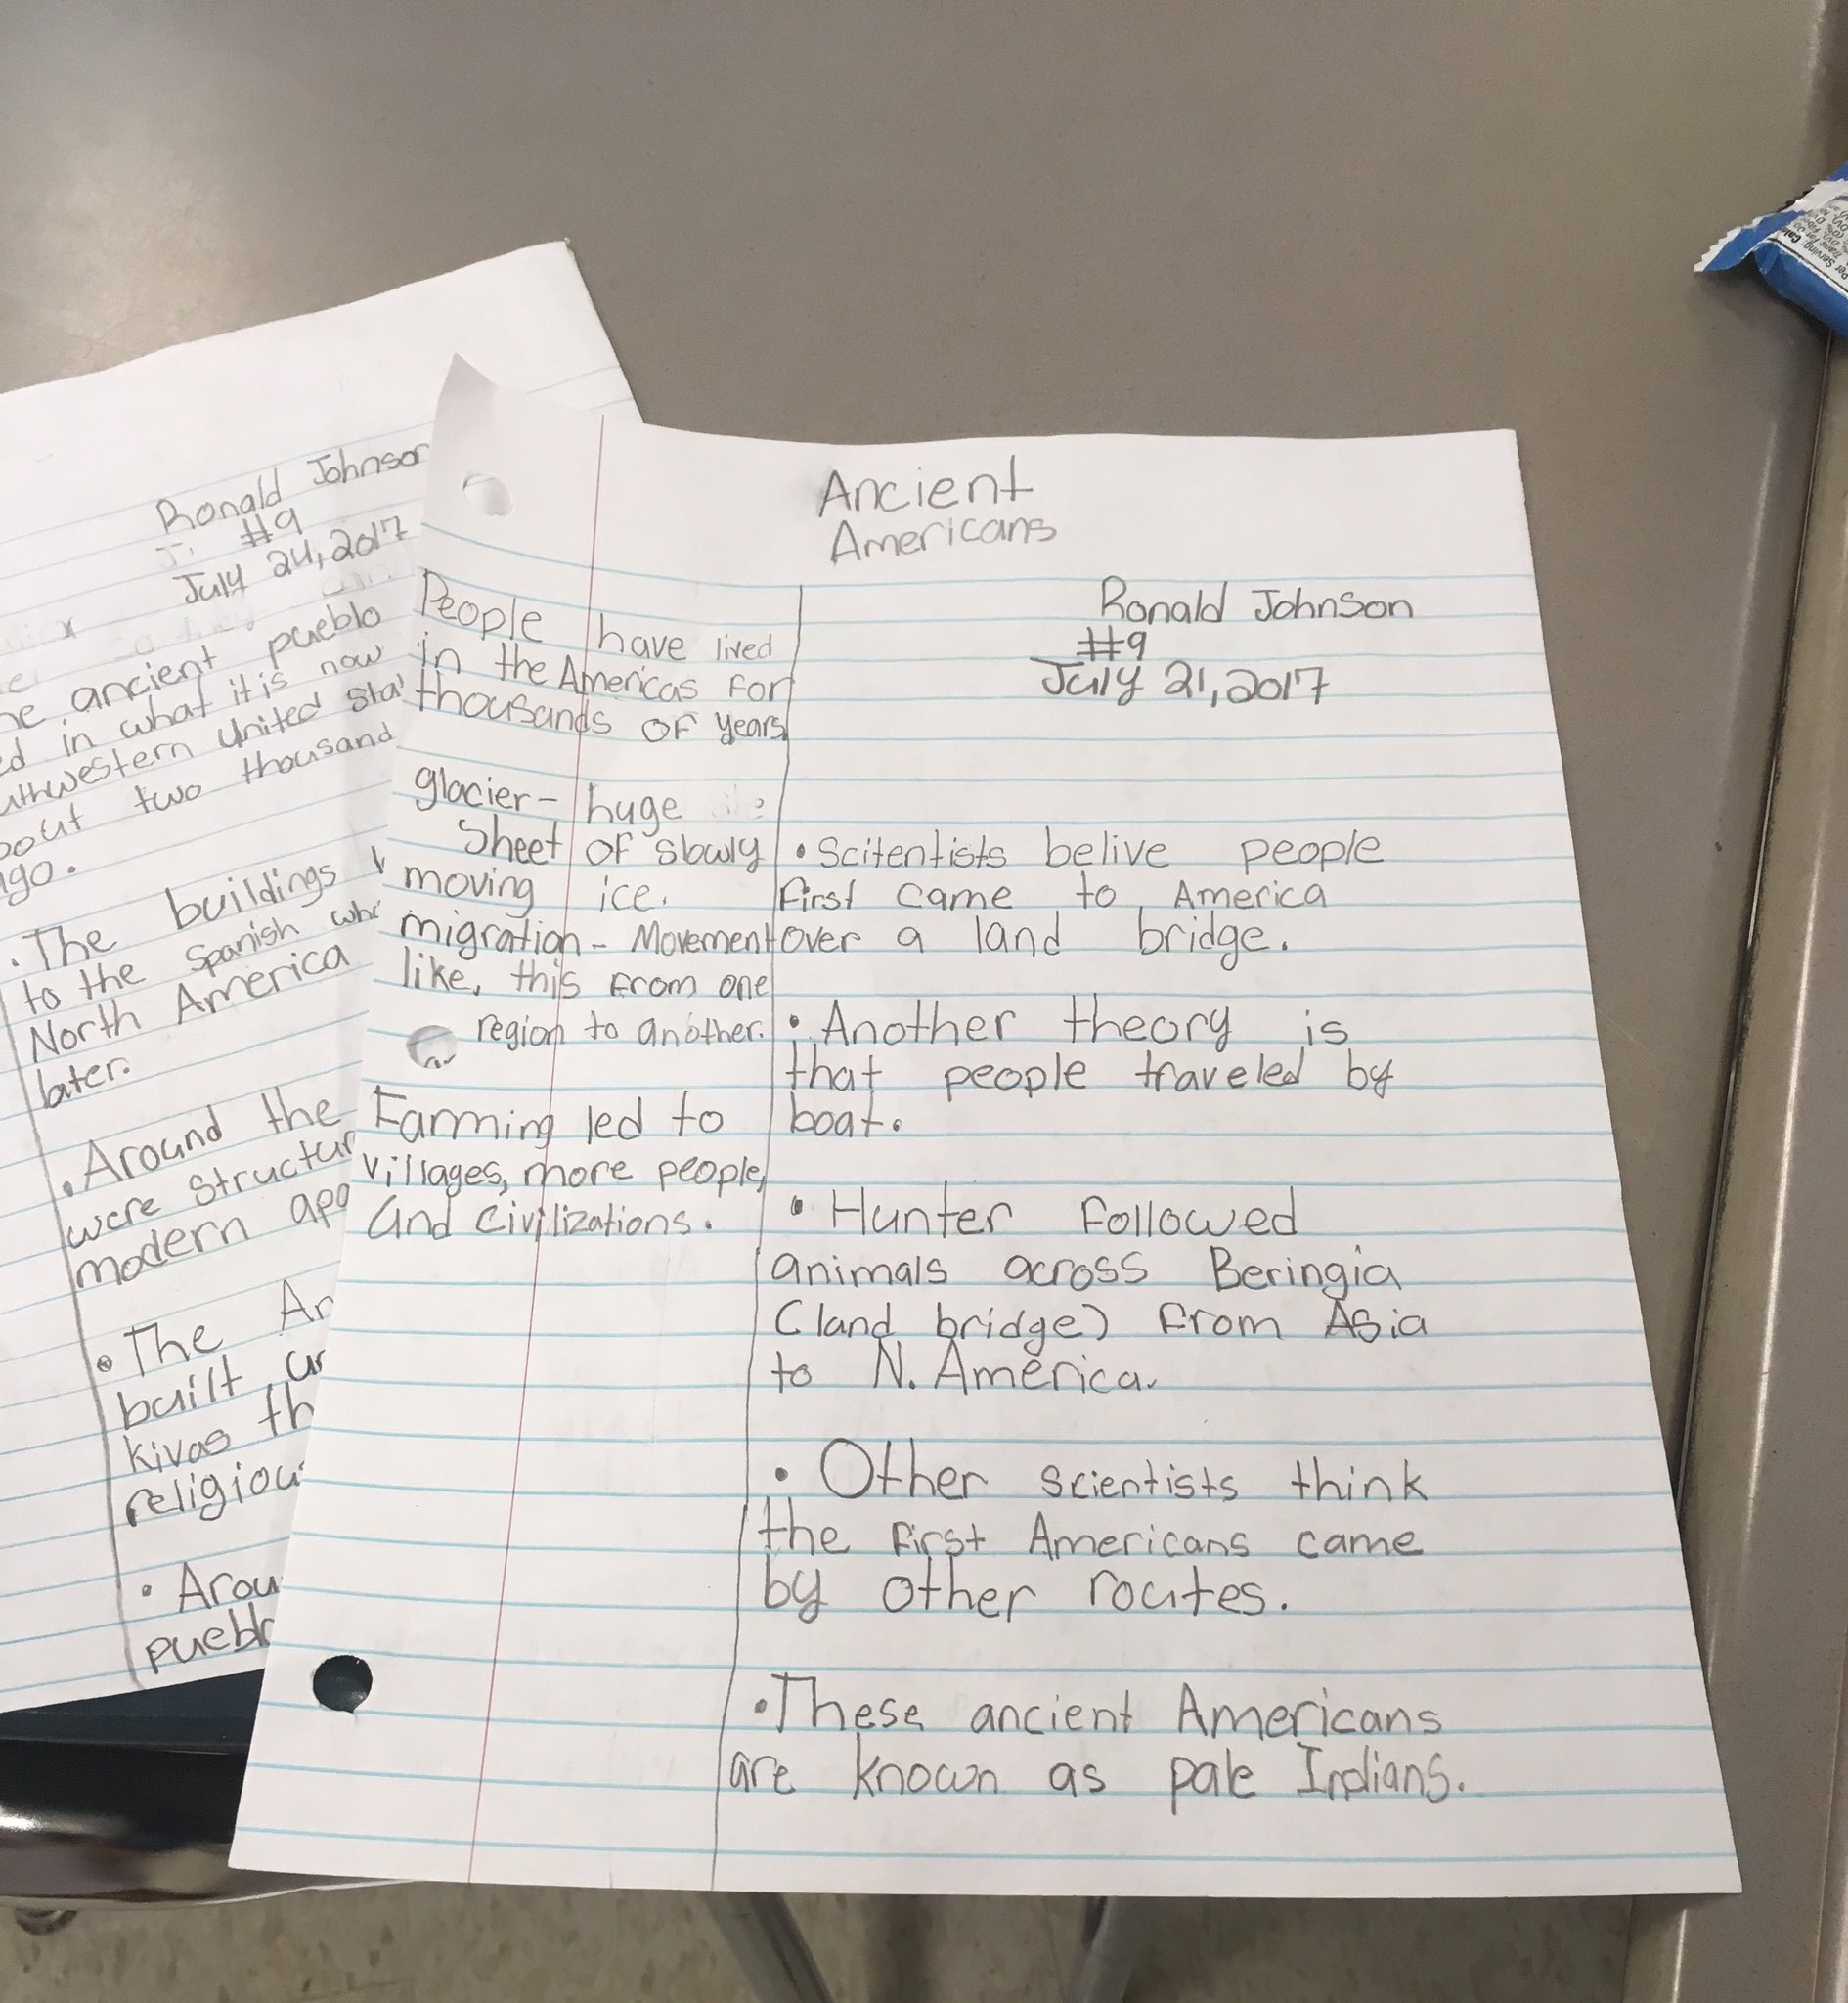 Ronald Johnson
#9
July 24, 2017
ancient pueblo
in what it is now
United
about two thousand
ago.
.The buildings
to the Spanish
North America
later.
.Around the
were
modern
•The
built
kivas
religious
•
Ancient
Americans
Ronald Johnson
#9
July 21, 2017
People have lived
in the Americas For
thousands of years
glacier- huge
Sheet of slowly
moving ice.
migration- Movement
like, this From one
region to another.
Farming led to
villages, more people,
and civilizations.
•Scitentists belive people
First came to America
over a land bridge.
•Another theory is
that people traveled by
boat.
•Hunter Followed
animals across Beringia
(land bridge) From Asia
to N. America.
•Other scientists think
the First Americans came
by other routes.
•These ancient Americans
are known as pale Indians.